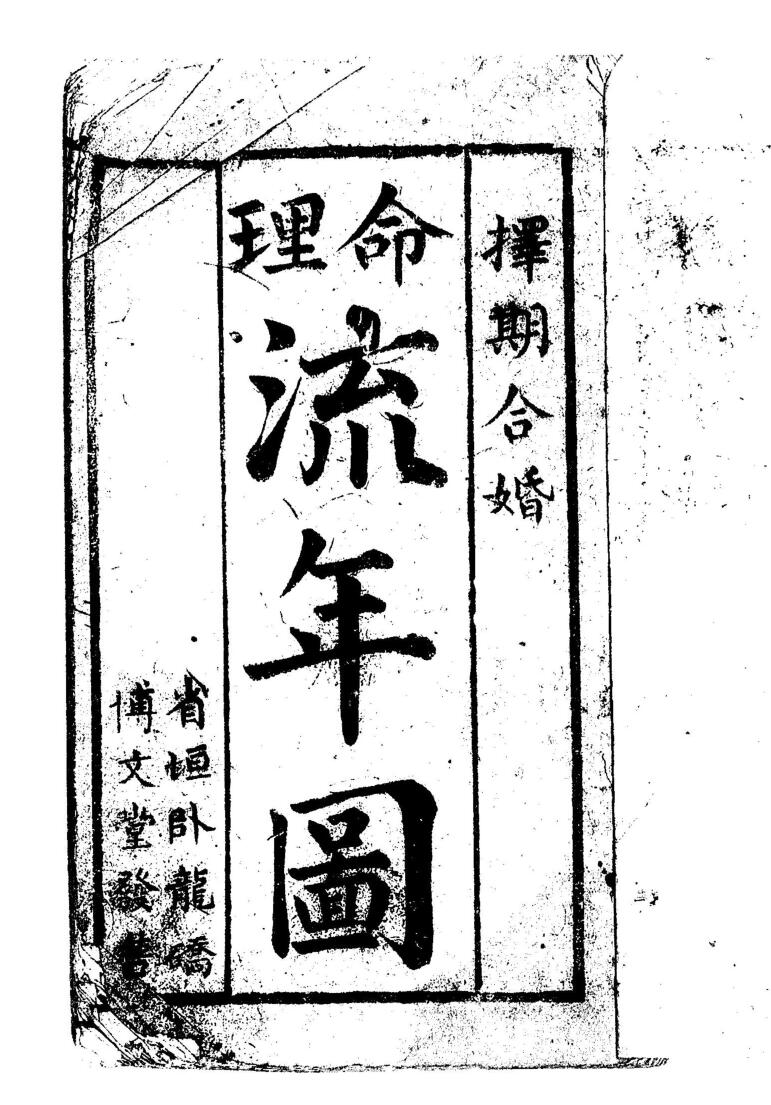 擇期合婚
命理
流年圖
省垣卧龍橋
博文堂發售